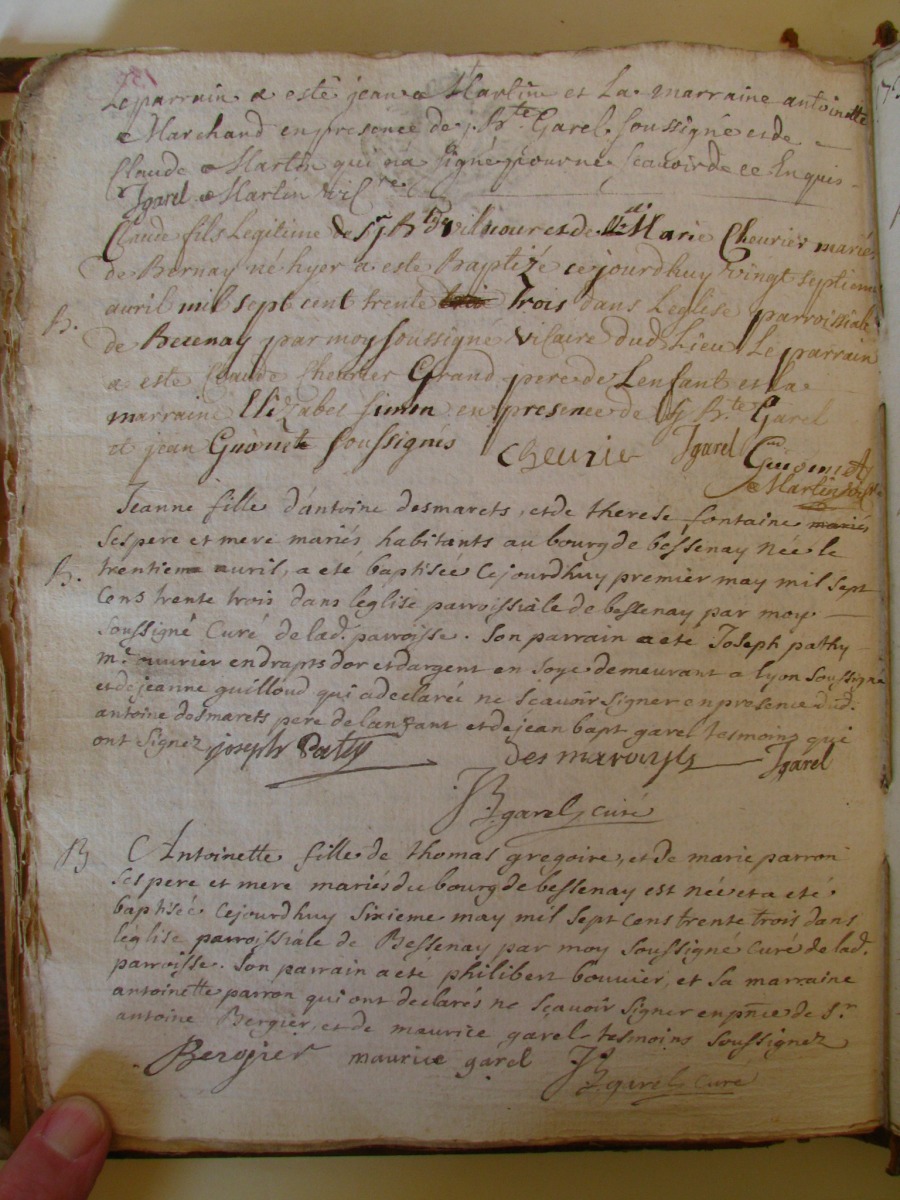 Le parrain a esté jean Martin et La marraine antoinette
Marchand en presence de j. Bte Garel Soussigné et de
Claude Martin qui n'a Signé pour ne Scavoir de ce Enquis
Jgarel Martin vicre
Claude fils Legitime de Sr j Bte et de Marie Cheurier mariés
de Bernay né hyer a esté Baptizé ce jourdhuy vingt septieme
avril mil sept cent trente Trois dans Leglise parroissiale
B.
de Becenay par moy Soussigné Vicaire dud Lieu Le parrain
a esté Claude Cheurier Grand pere de Lenfant et La
marraine Elizabet Simon en presence de j Bte Garel
et jean Guionet Soussignés Cheurier Jgarel Guionet
Martin vicre
Jeanne fille d'antoine desmarets, et de therese fontaine mariés
Ses pere et mere mariés habitants au bourg de bessenay née le
B.
trentieme avril, a été baptisée Cejourdhuy premier may mil Sept
Cens trente trois dans léglise parroissiale de bessenay par moy
Soussigné Curé de lad. parroisse. Son parrain a eté Joseph pathy
me ouvrier en drapts dor et dargent en Soye demeurant a lyon Soussigné
et de jeanne guilloud qui a declarée ne Scavoir signer en presence dud.
antoine desmarets pere de lanfant et de jean bapt garel tesmoins qui
ont Signez joseph Pathy des marays Jgarel
JBgarel, curé
B
Antoinette fille de thomas gregoire, et de marie parron
Ses pere et mere mariés du bourg de bessenay est née et a eté
baptisée Cejourdhuy Sixieme may mil Sept Cens trente trois dans
léglise parroissiale de Bessenay par moy Soussigné Curé de lad.
parroisse. Son parrain a eté philibert bouvier, et Sa marraine
antoinette parron qui ont declarés ne Scavoir Signer en pnce de Sr
antoine Bergier, et de maurice garel tesmoins Soussignez
Bergier maurice garel JBgarel, curé